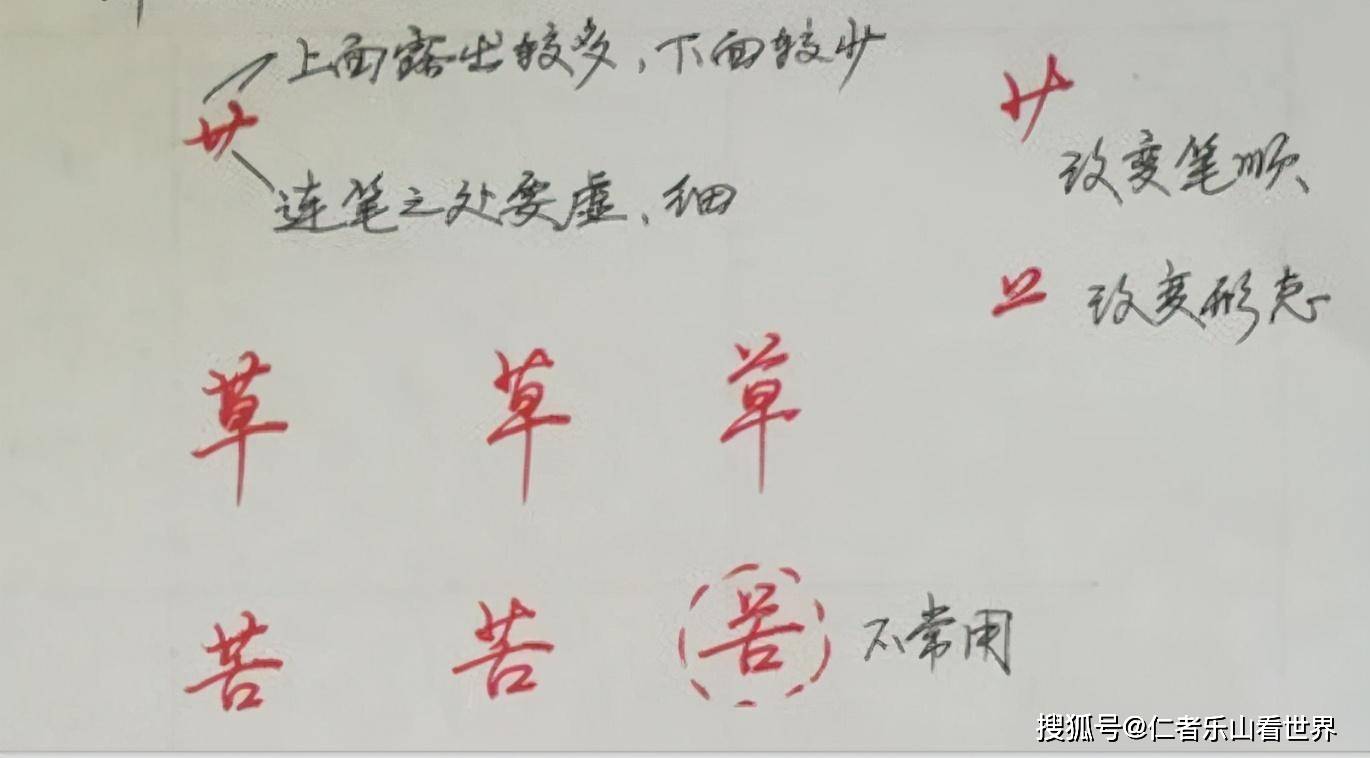 上面露出较多，下面较少
艹 艹
改变笔顺
连笔之处要虚、细
改变形态
草 草 草
苦 苦 苦 不常用
搜狐号@仁者乐山看世界